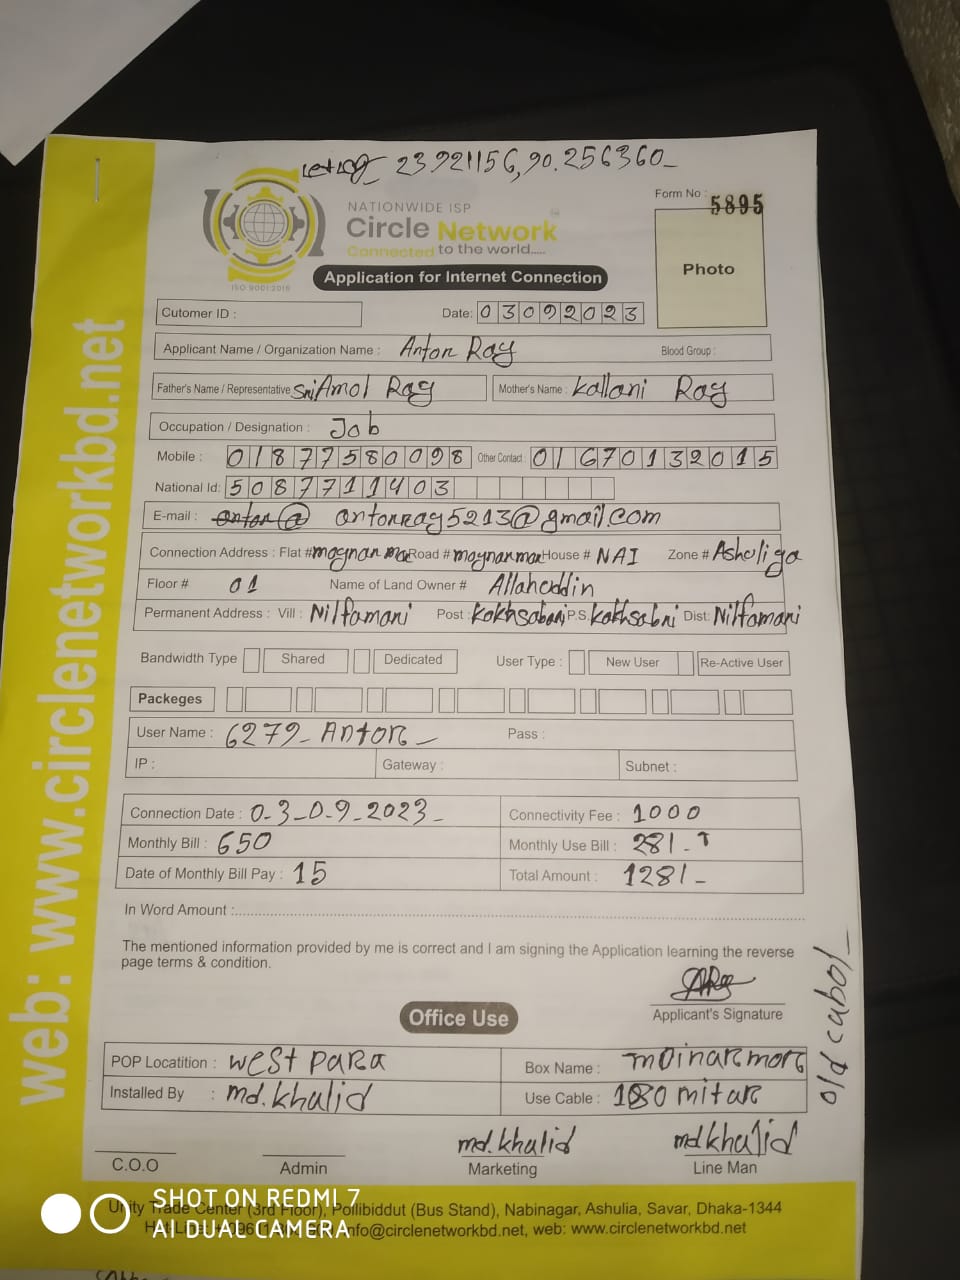 23.921156,90.256360
Form No : 5895
NATIONWIDE ISP
Circle Network
Connected to the world.....
ISO 9001:2015
Photo
Application for Internet Connection
Cutomer ID :
Date: 03092023
Applicant Name / Organization Name : Anton Ray Blood Group :
Father's Name / Representative Sri Amol Ray Mother's Name : Kallani Ray
Occupation / Designation : Job
Mobile : 01877580098 Other Contact : 01670132015
National Id: 5087711403
E-mail : antonray5213@gmail.com
Connection Address : Flat # moynar mar Road # moynarmar House # NAI Zone # Ashuliya
Floor # 01 Name of Land Owner # Allahuddin
Permanent Address : Vill : Nilfamari Post : P.S. Dist: Nilfamari
Bandwidth Type Shared Dedicated User Type : New User Re-Active User
Packeges
User Name : 6279_Antor_ Pass :
IP : Gateway : Subnet :
Connection Date : 0-3-09-2023_ Connectivity Fee : 1000
Monthly Bill : 650 Monthly Use Bill : 281-
Date of Monthly Bill Pay : 15 Total Amount : 1281-
In Word Amount :
The mentioned information provided by me is correct and I am signing the Application learning the reverse
page terms & condition.
Applicant's Signature
Office Use
POP Locatition : west para Box Name : moinarmor
Installed By : md.khalid Use Cable : 180 mitar
old cabol_
md.khalid md khalid
C.O.O Admin Marketing Line Man
Unity Trade Center (3rd Floor), Pollibiddut (Bus Stand), Nabinagar, Ashulia, Savar, Dhaka-1344
info@circlenetworkbd.net, web: www.circlenetworkbd.net
web: www.circlenetworkbd.net
SHOT ON REDMI 7
AI DUAL CAMERA